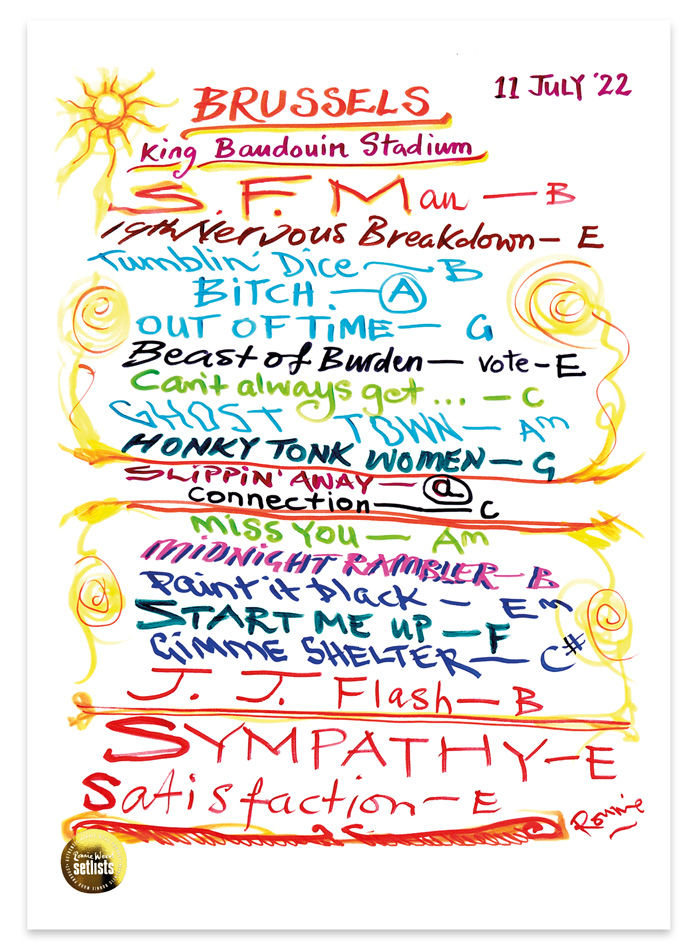 11 JULY '22
BRUSSELS
King Baudouin Stadium
S.F. Man — B
19th Nervous Breakdown — E
Tumblin' Dice — B
BITCH. — A
OUT OF TIME — G
Beast of Burden — vote - E
Can't always get ... — C
GHOST TOWN — Am
HONKY TONK WOMEN — G
SLIPPIN' AWAY — a
Connection — C
MISS YOU — Am
MIDNIGHT RAMBLER — B
Paint it black — Em
START ME UP — F
GIMME SHELTER — C#
J. J. Flash — B
SYMPATHY — E
Satisfaction — E
Ronnie
Ronnie Wood
setlists